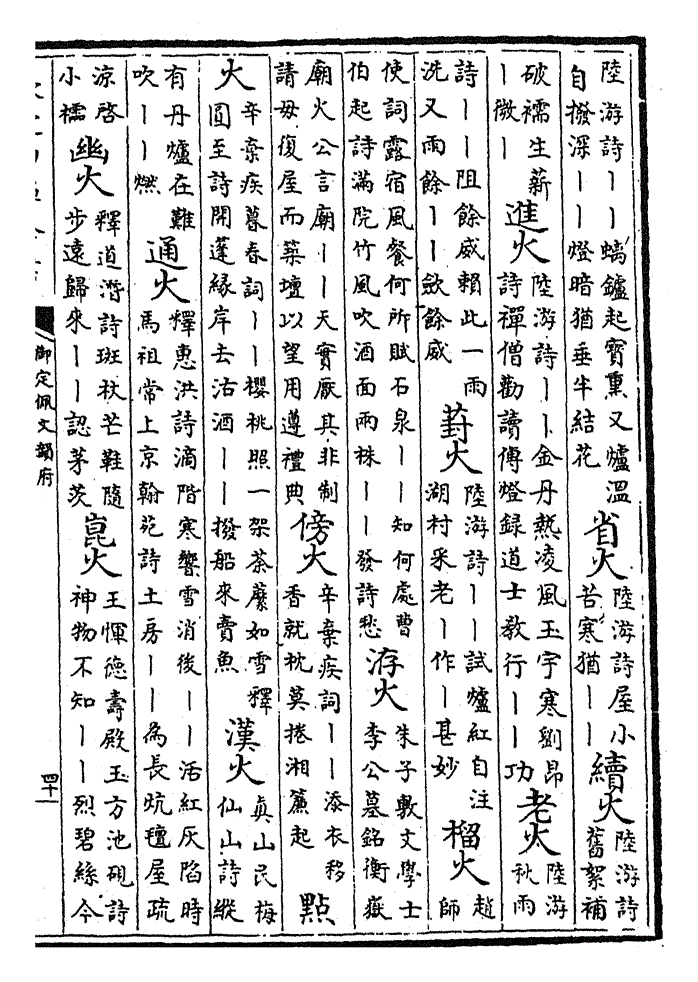 陸游詩丨丨螭鑪起寶熏又爐溫
自撥深丨丨燈暗猶垂半結花
省火
陸游詩屋小
苦寒猶丨丨
續火
陸游詩
舊絮補
破襦生薪
丨微丨
進火
陸游詩丨丨金丹熱凌風玉宇寒劉昂
詩禪僧勸讀傳燈録道士教行丨丨功
老火
陸游
秋雨
詩丨丨阻餘威賴此一雨
洗又雨餘丨丨歛餘威
葑火
陸游詩丨丨試爐紅自注
湖村采老丨作丨甚妙
榴火
趙
師
使詞露宿風餐何所賦石泉丨丨知何處曹
伯起詩滿院竹風吹酒面兩株丨丨發詩愁
洊火
朱子敷文學士
李公墓銘衡嶽
廟火公言廟丨丨天實厭其非制
請毋復屋而築壇以望用遵禮典
傍火
辛棄疾詞丨丨添衣移
香就枕莫捲湘簾起
點
火
辛棄疾暮春詞丨丨櫻桃照一架荼蘼如雪釋
圓至詩開蓬緣岸去沽酒丨丨撥船來賣魚
漢火
真山民梅
仙山詩縱
有丹爐在難
吹丨丨燃
通火
釋惠洪詩滴階寒響雪消後丨丨活紅灰陷時
馬祖常上京翰苑詩土房丨丨為長炕氊屋疏
涼啓
小襦
幽火
釋道潛詩斑杖芒鞋隨
步遠歸來丨丨認茅茨
崑火
王惲德壽殿玉方池硯詩
神物不知丨丨烈碧絲今
御定佩文韻府
四十一